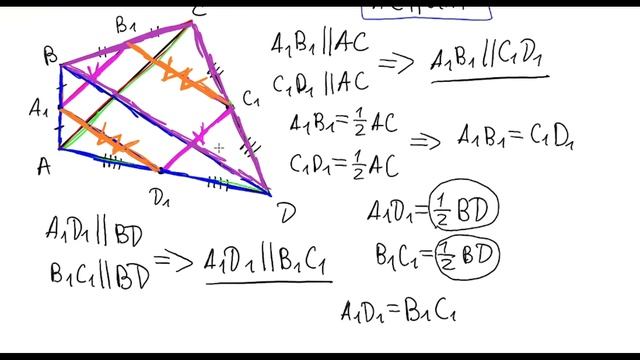 C
B1
B
A1
C1
A
D1
D
A1B1 || AC
C1D1 || AC
=> A1B1 || C1D1
A1B1 = 1/2 AC
C1D1 = 1/2 AC
=> A1B1 = C1D1
A1D1 = 1/2 BD
B1C1 = 1/2 BD
A1D1 || BD
B1C1 || BD
=> A1D1 || B1C1
A1D1 = B1C1